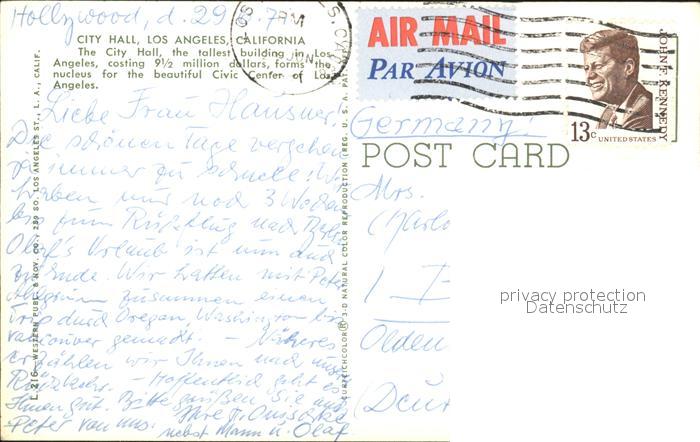 Hollywood, d. 29
CITY HALL, LOS ANGELES, CALIFORNIA
The City Hall, the tallest building in Los
Angeles, costing 9½ million dollars, forms the
nucleus for the beautiful Civic Center of Los
Angeles.
Liebe Frau Hausner,
Die schönen Tage vergehen
immer zu schnell! Wir
haben nur noch 3 Wochen
bis zum Rückflug nach
Olaf's Urlaub ist nun auch
zu Ende. Wir hatten mit Peter
zusammen einen
Trip durch Oregon, Washington bis
Vancouver gemacht. – Näheres
erzählen wir Ihnen nach unserer
Rückkehr. – Hoffentlich geht es
Ihnen gut. Bitte grüßen Sie auch
Peter von uns. Ihre
nebst Mann u. Olaf
L.216 WESTERN PUBL. & NOV. CO. 259 SO. LOS ANGELES ST., L. A., CALIF.
CURTEICHCOLOR® 3-D NATURAL COLOR REPRODUCTION (REG. U. S. A. PAT.
AIR MAIL
PAR AVION
JOHN F. KENNEDY
13c
UNITED STATES
Germany
POST CARD
Mrs.
privacy protection
Datenschutz